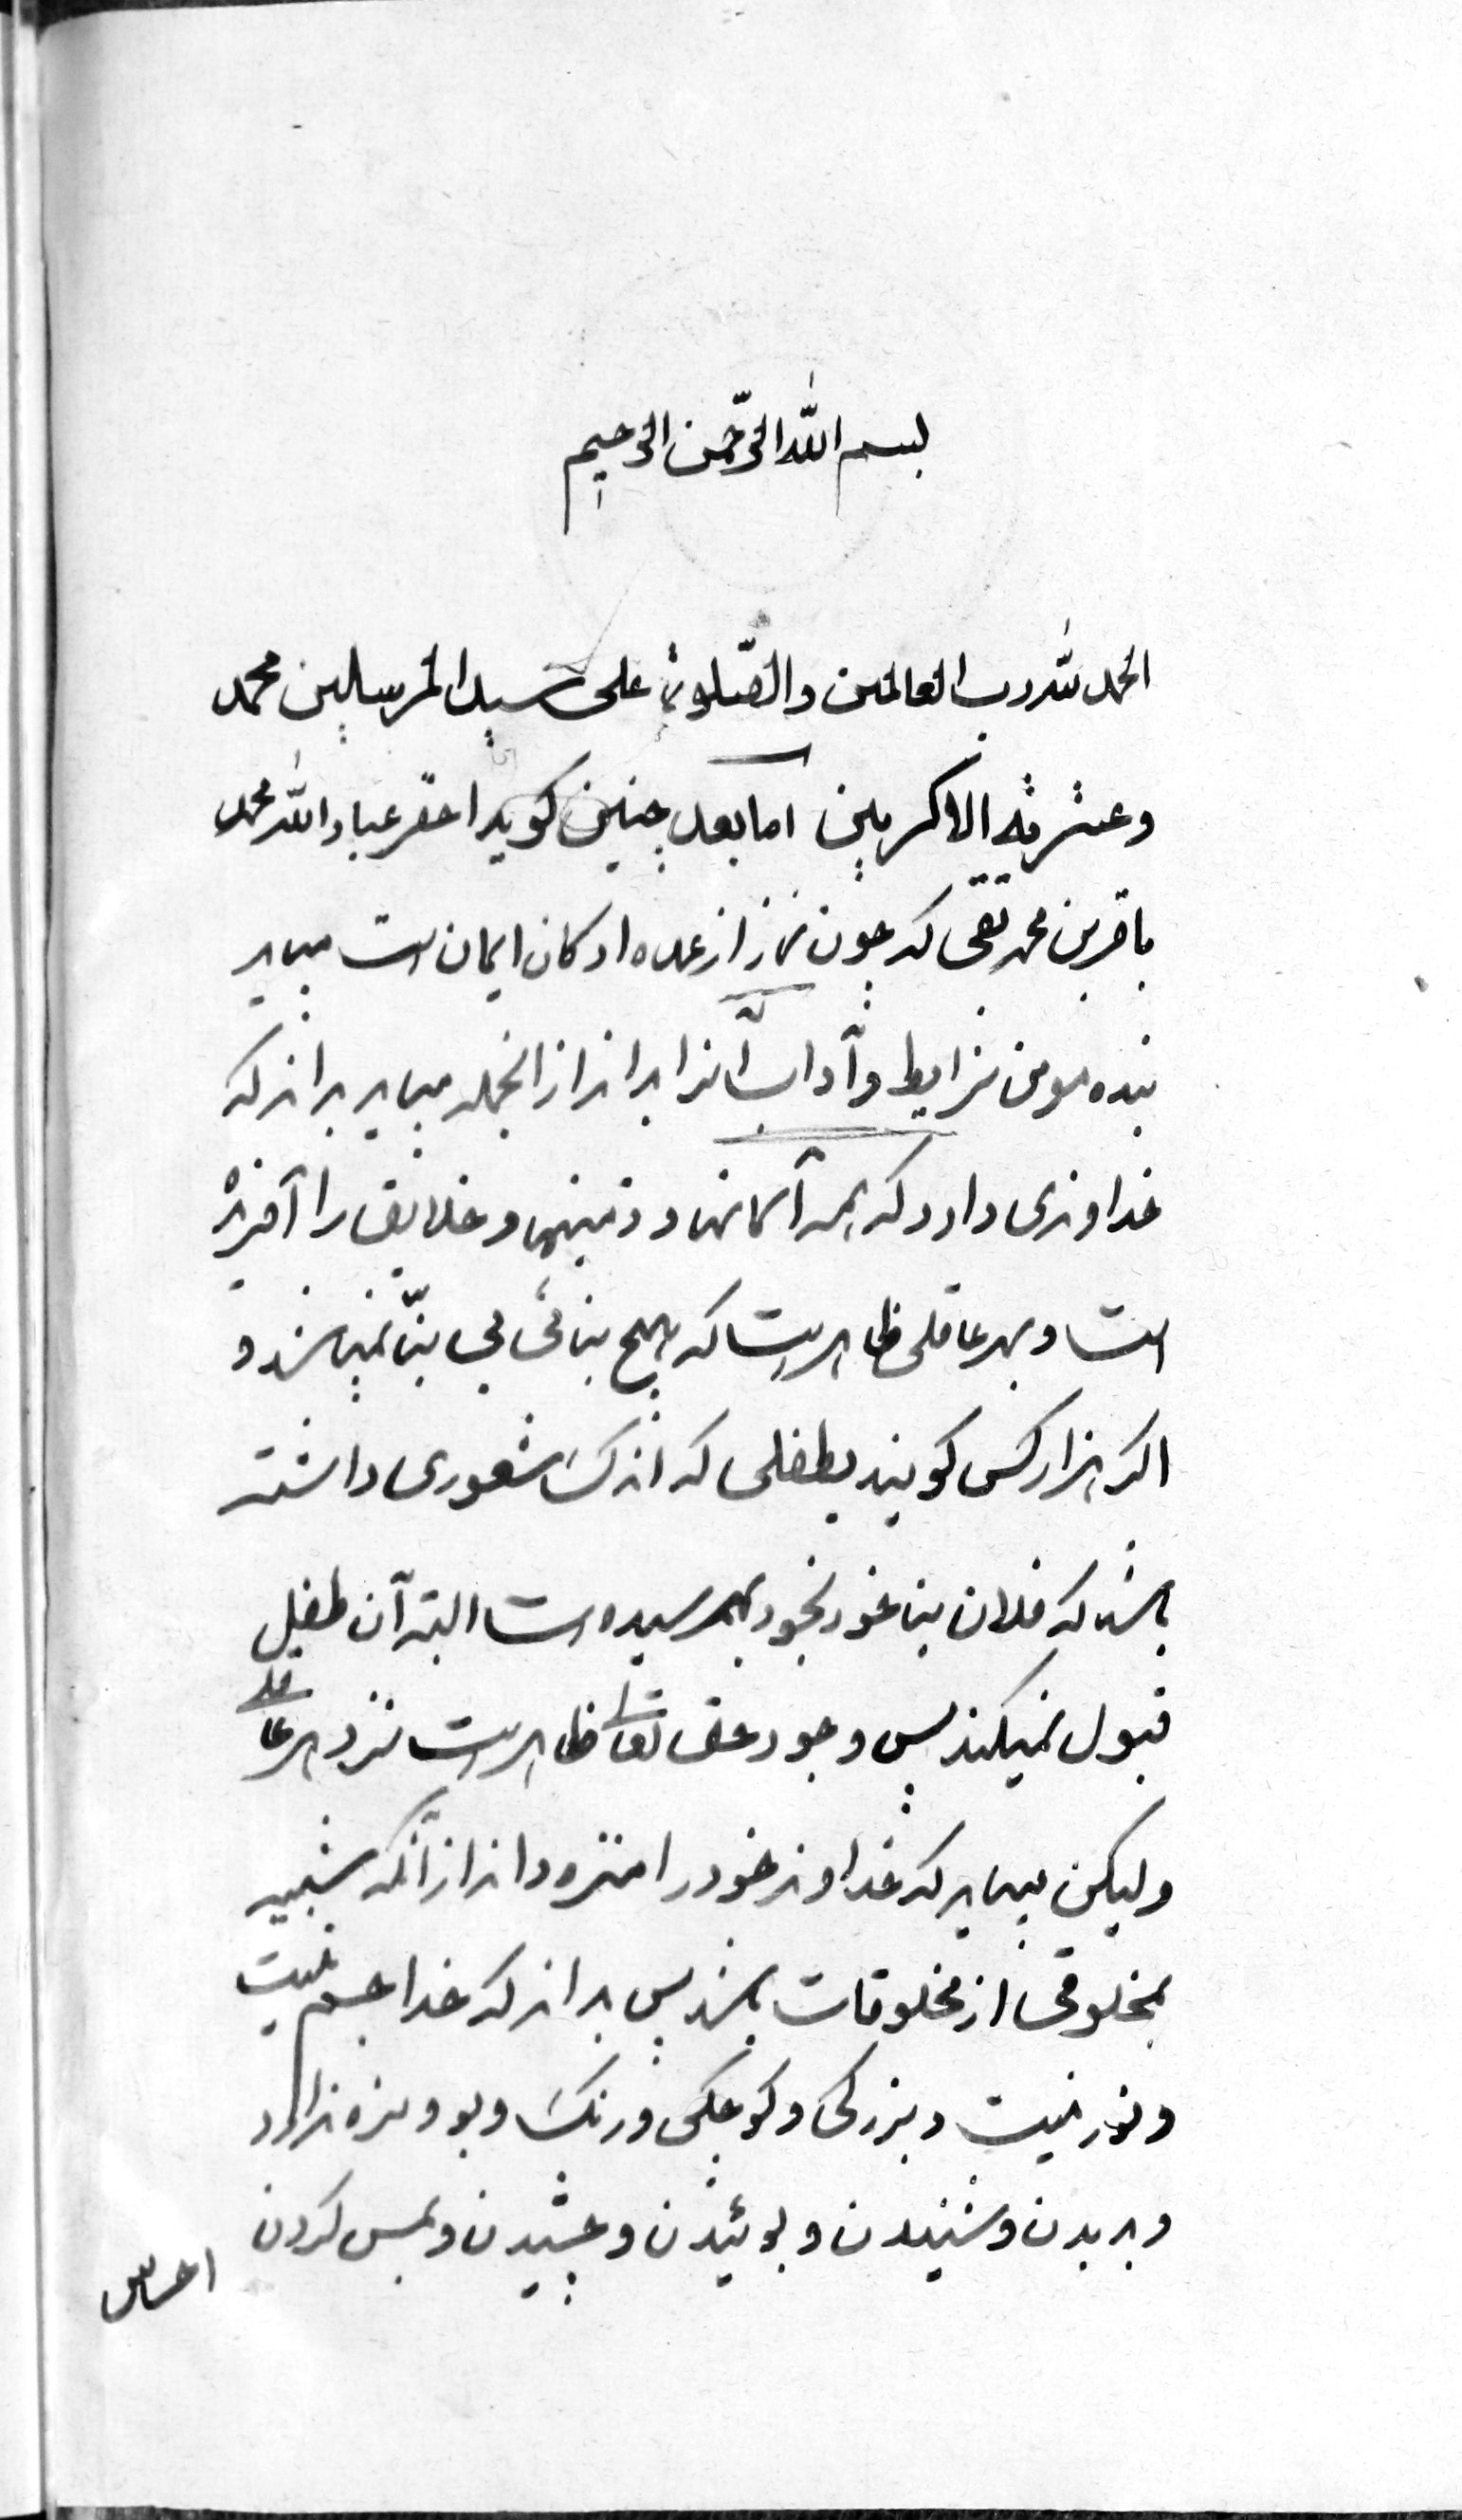 بسم الله الرّحمن الرحیم
الحمد لله رب العالمین والصّلوة علی سید المرسلین محمد
وعترته الاکرمین اما بعد چنین کوید احقر عباد الله محمد
باقر بن محمد تقی که چون نماز از عمده ارکان ایمان است میباید
بنده مومن شرایط وآداب آنرا بداند از انجمله میباید بداند که
خداوندی دارد که همه آسمانها وزمینها و خلایق را آفریده
است و بهر عاقلی ظاهر است که هیچ بنائی بی بنّا نمیباشد و
اکر هزار کس کویند بطفلی که اندک شعوری داشته
باشد که فلان بنا خود بخود بهم رسیده است البته آن طفل
قبول نمیکند پس وجود حق تعالی ظاهر است نزد هر عاقلی
ولیکن میباید که خداوند خود را منزه داند از آنکه شبیه
بمخلوقی از مخلوقات باشد پس بداند که خدا جسم نیست
و نور نیست و بزرکی و کوچکی و رنک و بو و مزه ندارد
و بدیدن و شنیدن و بوئیدن و چشیدن و لمس کردن
احساس